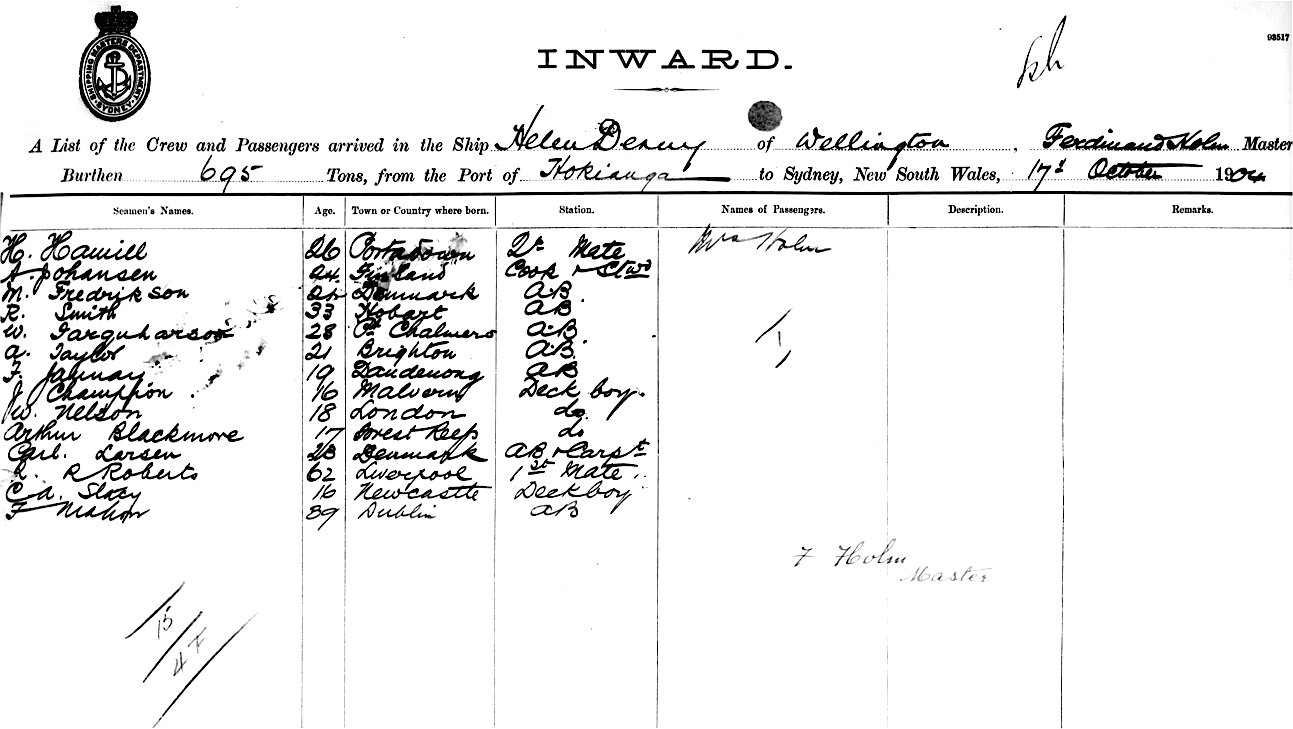 SHIPPING MASTERS DEPARTMENT SYDNEY
93517
INWARD.
A List of the Crew and Passengers arrived in the Ship Helen Denny of Wellington, Ferdinand Holm Master
Burthen 695 Tons, from the Port of Hokianga to Sydney, New South Wales, 17th October 1904
Seamen's Names. Age. Town or Country where born. Station. Names of Passengers. Description. Remarks.
H. Hamill 26 Portadown 2nd Mate Mrs Holm
A. Johansen 24 Finland Cook & Stwd
M. Fredrikson 24 Denmark A.B.
R. Smith 33 Hobart AB
W. Farquharson 28 Pt Chalmers A.B.
A. Taylor 21 Brighton A.B. 1
F. Jannay 19 Dandenong AB
J. Champion 16 Malvern Deck boy.
W. Nelson 18 London do.
Arthur Blackmore 17 do
Carl. Larsen 28 Denmark AB & Carpt
R. R Roberts 62 Liverpool 1st Mate.
C A. Stacy 16 Newcastle Deck boy
F Mahon 39 Dublin AB
F Holm
Master
15
4 F